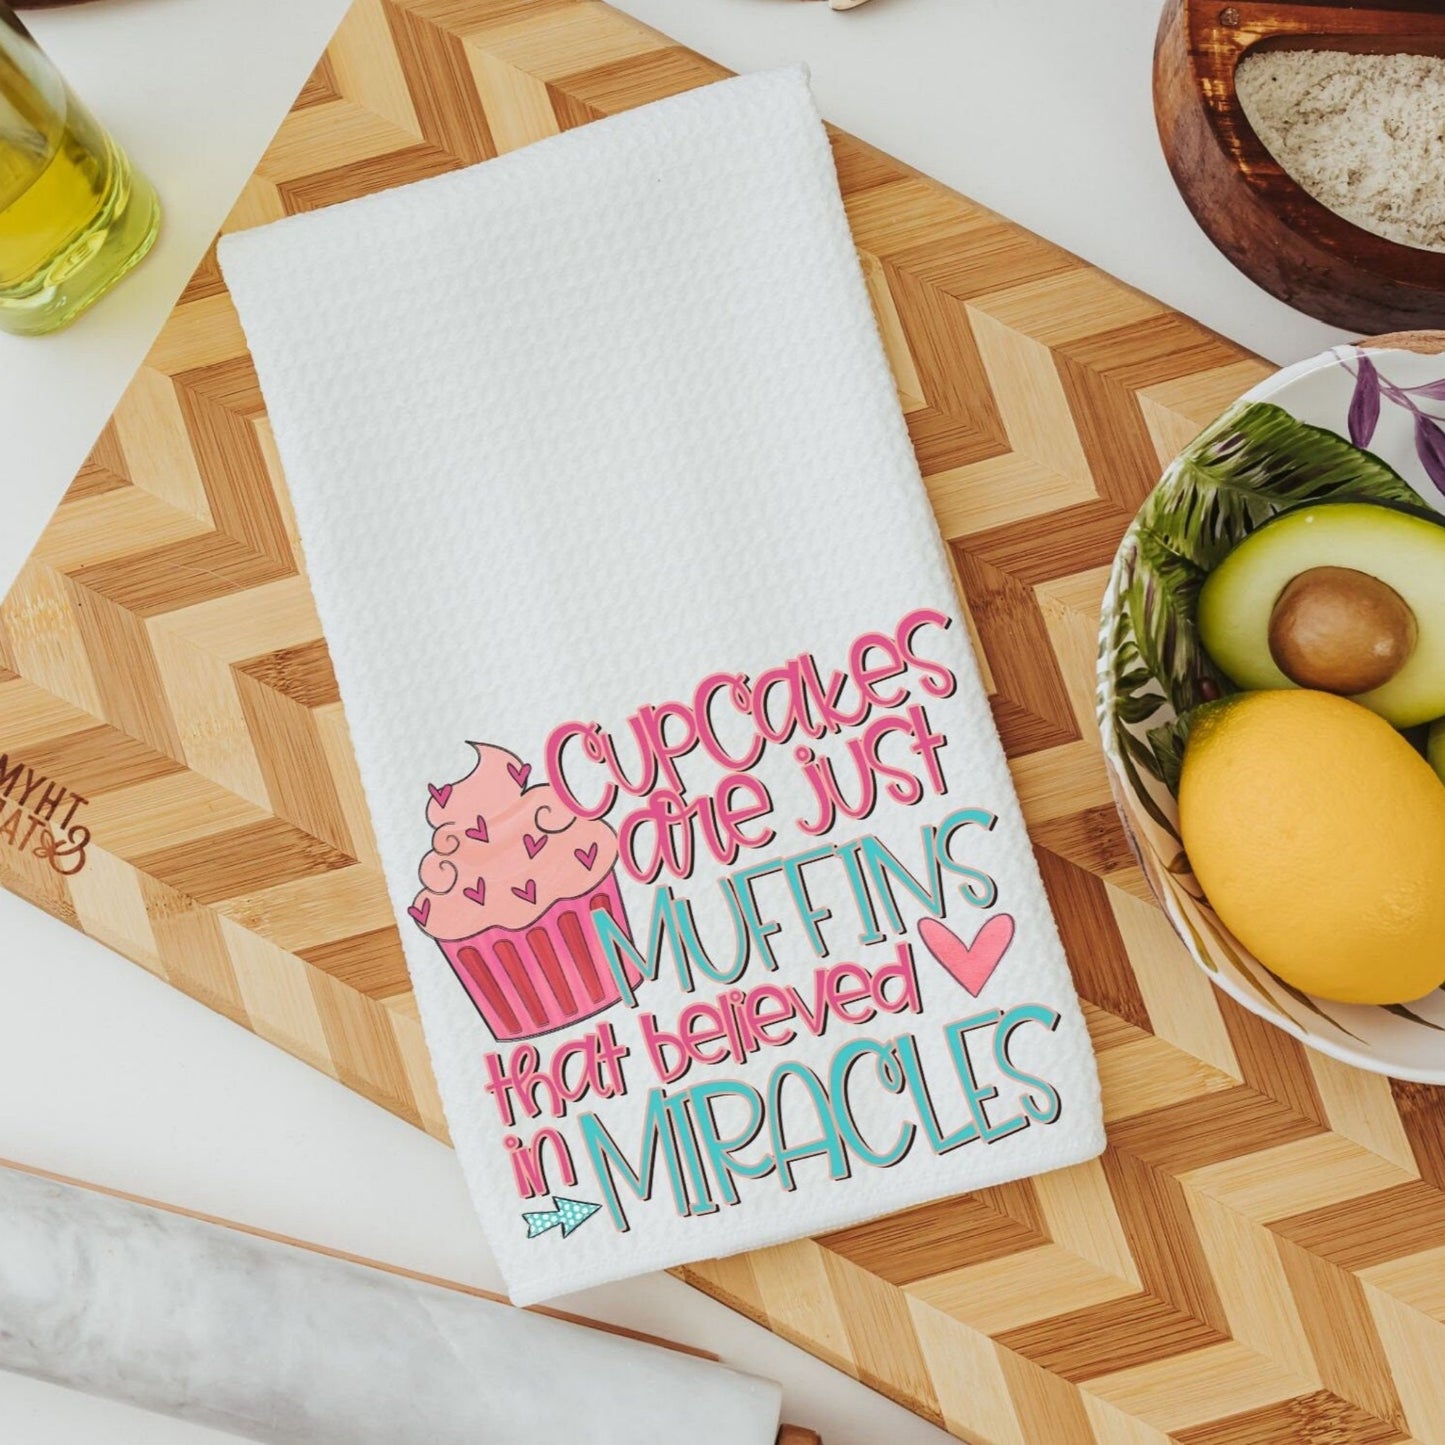 CUPCakes
are just
MUFFINS
that believed
in MIRACLES
MYHT